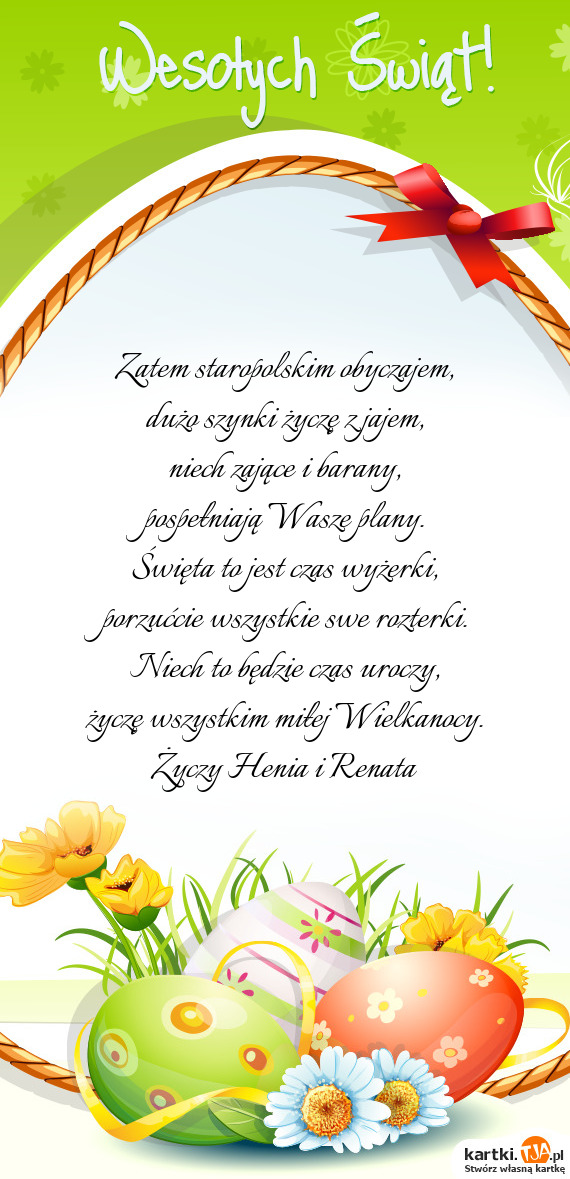 Wesołych Świąt!
Zatem staropolskim obyczajem,
dużo szynki życzę z jajem,
niech zające i barany,
pospełniają Wasze plany.
Święta to jest czas wyżerki,
porzućcie wszystkie swe rozterki.
Niech to będzie czas uroczy,
życzę wszystkim miłej Wielkanocy.
Życzy Henia i Renata
kartki.TJA.pl
Stwórz własną kartkę